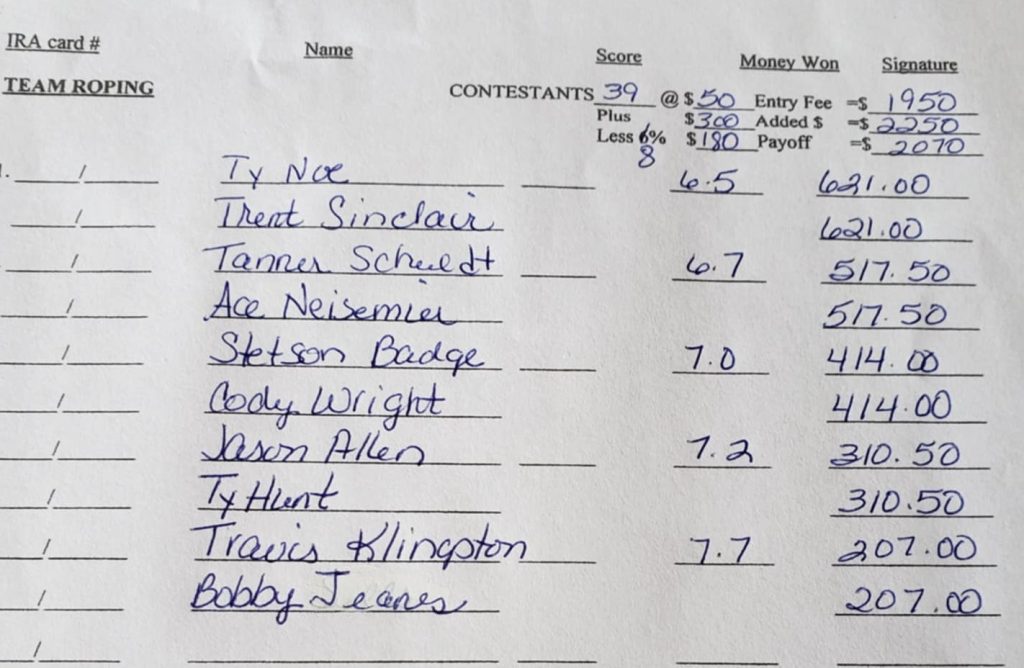 IRA card # Name Score Money Won Signature
TEAM ROPING CONTESTANTS 39 @ $ 50 Entry Fee =$ 1950
Plus $ 300 Added $ =$ 2250
Less 6% 8 $ 180 Payoff =$ 2070
1. / Ty Noe 6.5 621.00
/ Trent Sinclair 621.00
/ Tanner 6.7 517.50
/ Ace Neisemier 517.50
/ Stetson Badge 7.0 414.00
/ Cody Wright 414.00
/ Jason Allen 7.2 310.50
/ Ty Hunt 310.50
/ Travis Klingpton 7.7 207.00
/ Bobby Jeanes 207.00
/